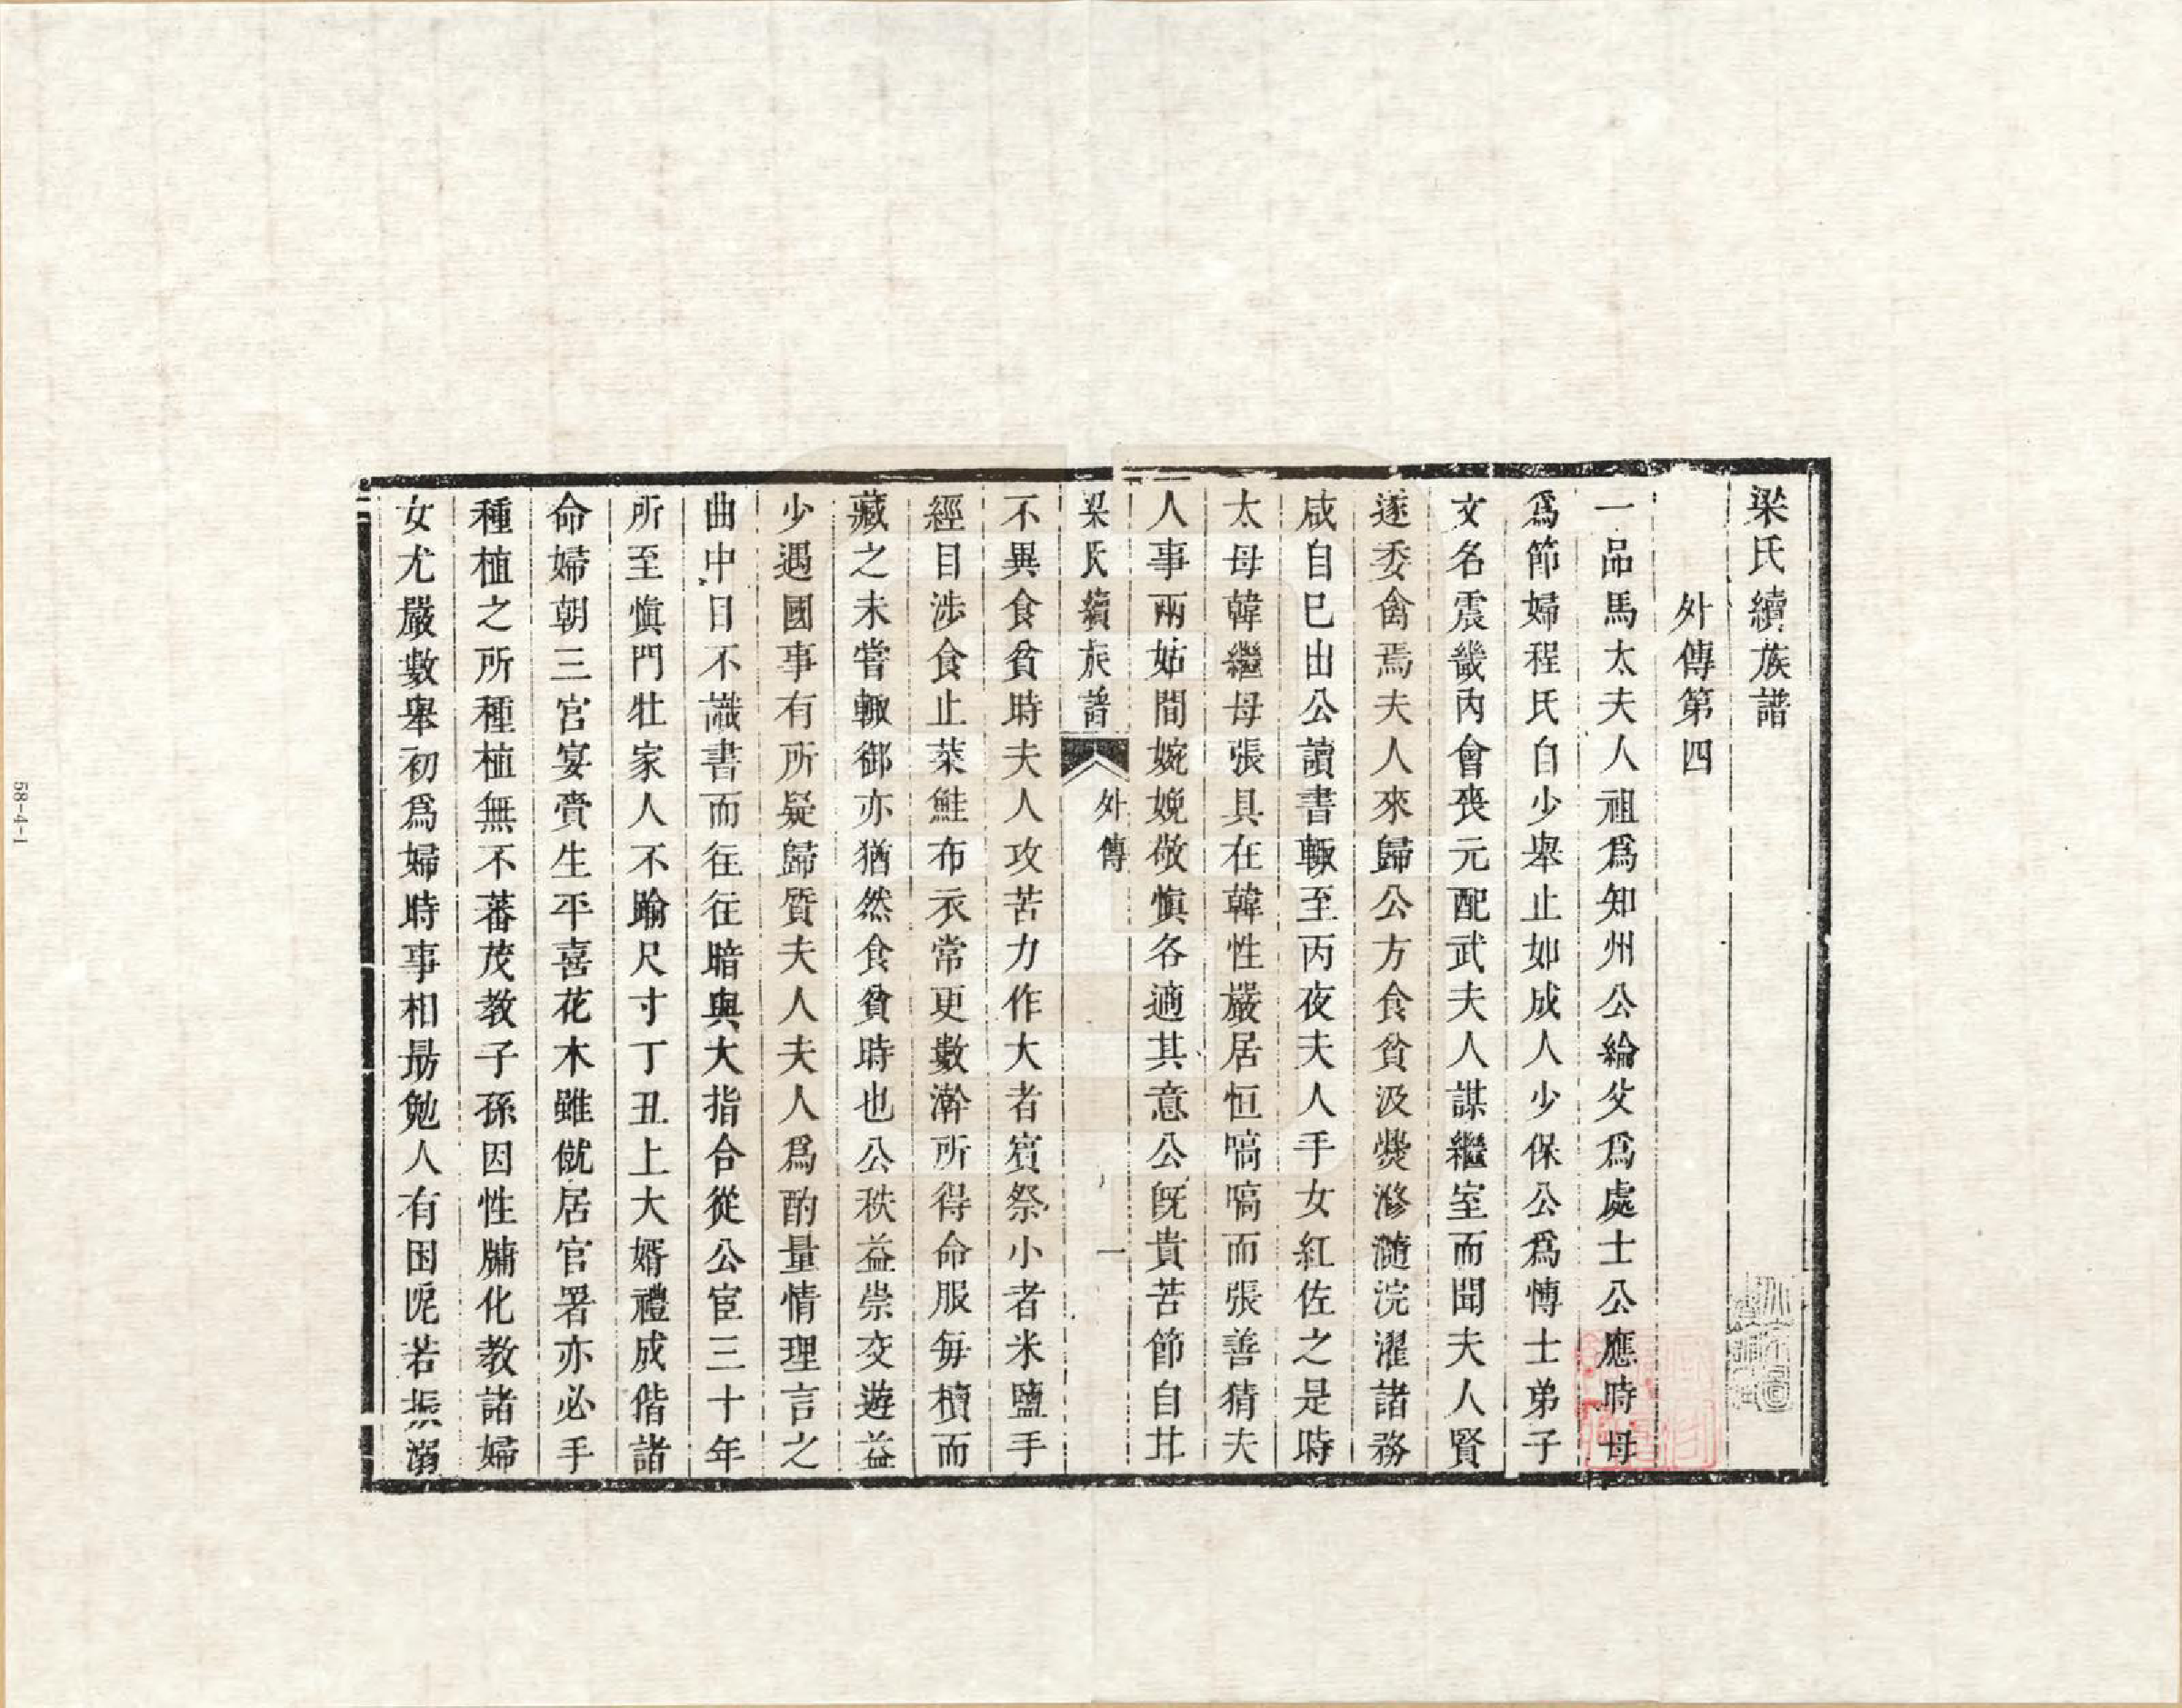 梁氏續族譜
外傳第四
一品馬太夫人祖爲知州公綸父爲處士公應時母
爲節婦程氏自少舉止如成人少保公爲博士弟子
文名震畿內會喪元配武夫人謀繼室而聞夫人賢
遂委禽焉夫人來歸公方食貧汲㸑滫瀡浣濯諸務
咸自巳出公讀書輙至丙夜夫人手女紅佐之是時
太母韓繼母張具在韓性嚴居恒嗃嗃而張善猜夫
人事兩姑間婉娩敬慎各適其意公旣貴苦節自甘
梁氏續族譜
外傳
一
不異食貧時夫人攻苦力作大者賓祭小者米鹽手
經目涉食止菜鮭布衣常更數澣所得命服毎櫝而
藏之未嘗輙御亦猶然食貧時也公秩益崇交遊益
少遇國事有所疑歸質夫人夫人爲酌量情理言之
曲中日不識書而往往暗與大指合從公宦三十年
所至慎門牡家人不踰尺寸丁丑上大婚禮成偕諸
命婦朝三宮宴賚生平喜花木雖僦居官署亦必手
種植之所種植無不蕃茂教子孫因性牗化教諸婦
女尤嚴數舉初爲婦時事相勗勉人有困阨若振溺
58-4-1